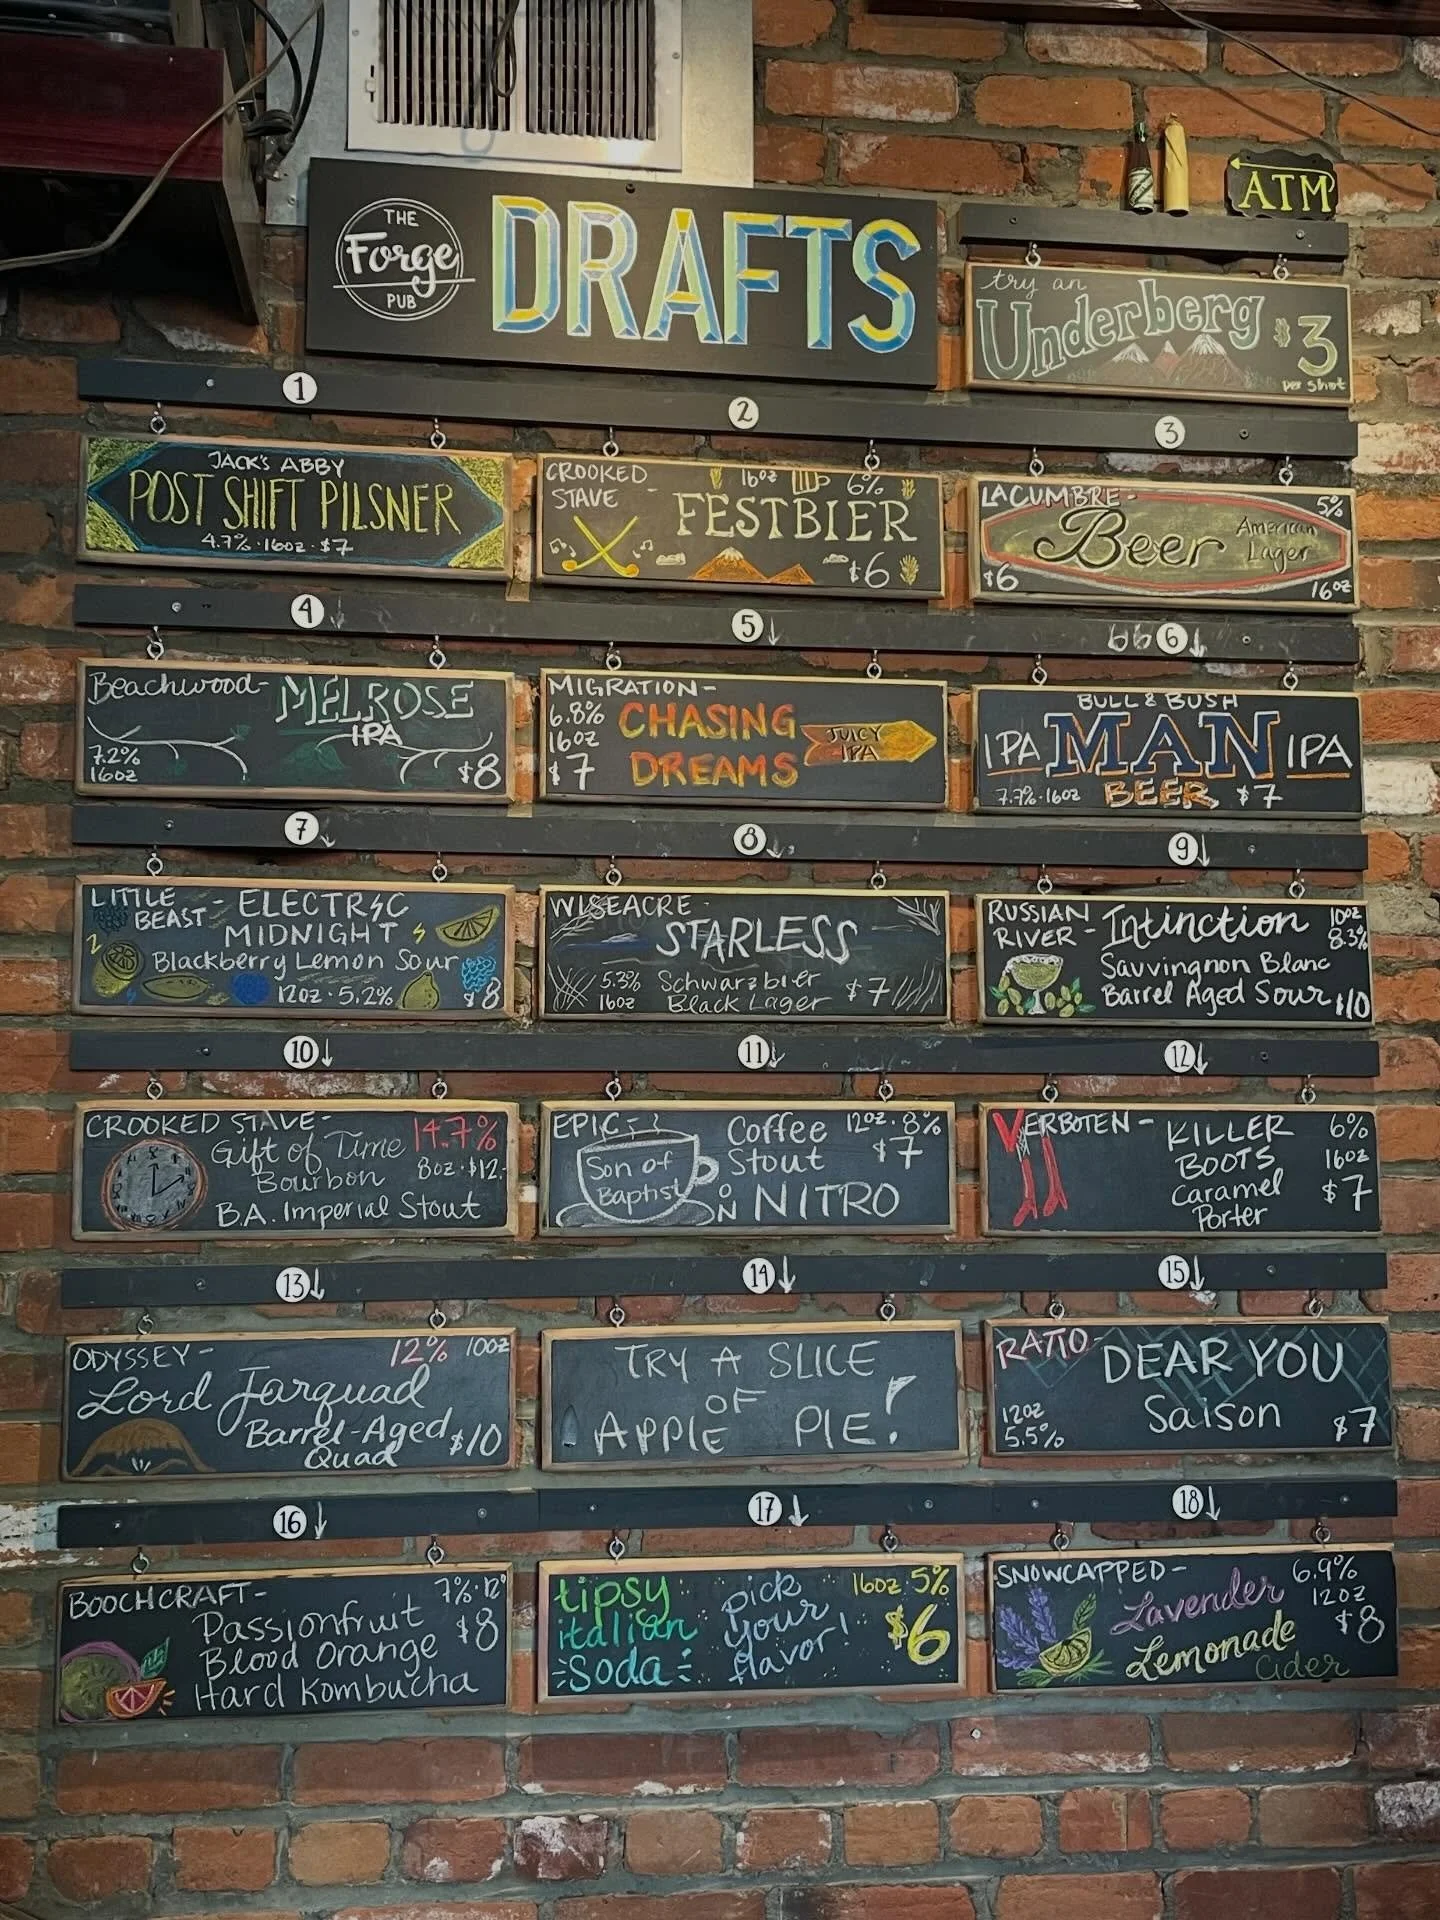 THE
Forge
PUB
DRAFTS
ATM
try an
Underberg $3
per shot
1
JACK'S ABBY
POST SHIFT PILSNER
4.7% · 16oz · $7
2
CROOKED
STAVE -
16oz 6%
FESTBIER
$6
3
LA CUMBRE -
5%
Beer
American
Lager
$6
16oz
4
Beachwood -
MELROSE
IPA
7.2%
16oz
$8
5
MIGRATION -
6.8%
16oz
$7
CHASING
DREAMS
JUICY
IPA
6
BULL & BUSH
IPA MAN IPA
7.7% · 16oz BEER $7
7
LITTLE
BEAST -
ELECTRIC
MIDNIGHT
Blackberry Lemon Sour
12oz · 5.2%
$8
8
WISEACRE -
STARLESS
5.3%
16oz
Schwarzbier
Black Lager
$7
9
RUSSIAN
RIVER -
Intinction
10oz
8.3%
Sauvingnon Blanc
Barrel Aged Sour $10
10
CROOKED STAVE -
Gift of Time
14.7%
8oz · $12.
Bourbon
B.A. Imperial Stout
11
EPIC -
Son of
Baptist
Coffee
Stout
12oz · 8%
$7
ON NITRO
12
VERBOTEN -
KILLER
BOOTS
Caramel
Porter
6%
16oz
$7
13
ODYSSEY -
12% 10oz
Lord Farquad
Barrel-Aged
Quad
$10
14
TRY A SLICE
OF
APPLE PIE!
15
RATIO -
DEAR YOU
Saison
12oz
5.5%
$7
16
BOOCHCRAFT -
7% · 12°
$8
Passionfruit
Blood Orange
Hard Kombucha
17
tipsy
italian
Soda
pick
your
flavor!
16oz 5%
$6
18
SNOWCAPPED -
6.9%
12oz
$8
Lavender
Lemonade
Cider